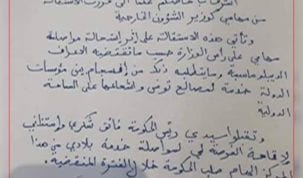 أتشرف بإعلامكم علما أني قررت الاستقالة
من مهامي كوزير للشؤون الخارجية
وتأتي هذه الاستقالة على إثر استحالة مواصلة
مهامي على رأس الوزارة حسب ما تقتضيه الأعراف
الديبلوماسية وما تتطلبه ذلك من انسجام بين مؤسسات
الدولة خدمة لمصالح تونس وإشعاعها على الساحة
الدولية
وتفضلوا سيدي رئيس الحكومة فائق شكري وامتناني
لإتاحة الفرصة لي لمواصلة خدمة بلادي من هذا
المركز الهام صلب الحكومة خلال الفترة المنقضية.